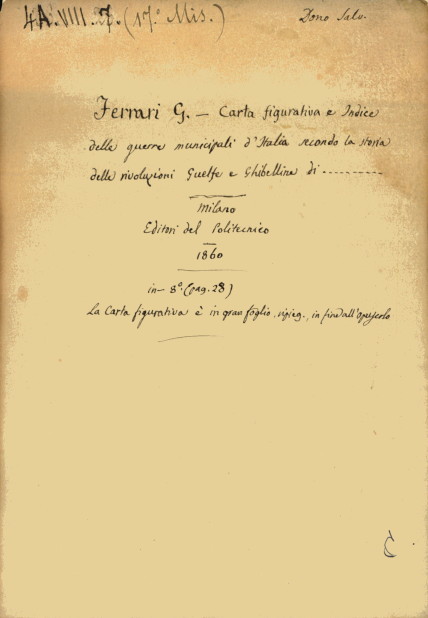 4A.VIII.7. (17.° Mis.)
Dono Salv.
Ferrari G. — Carta figurativa e Indice
delle guerre municipali d'Italia secondo la storia
delle rivoluzioni Guelfe e Ghibelline di ---------
Milano
Editori del Politecnico
1860
in-8.° (pag. 28)
La Carta figurativa è in gran foglio, ripieg., in fine all'opuscolo